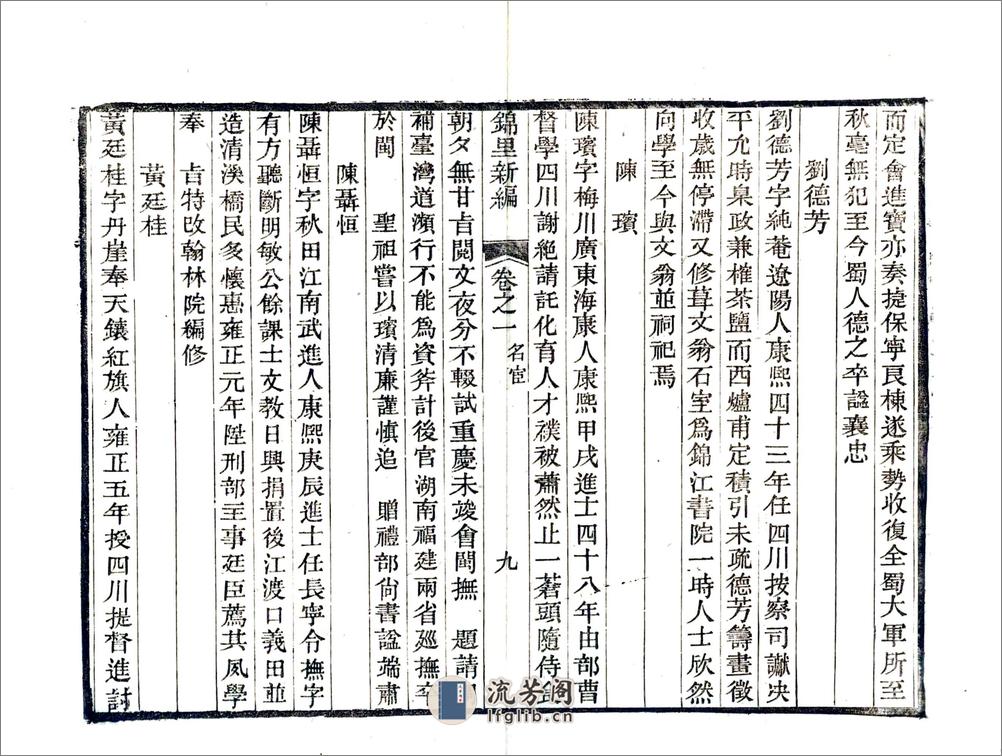 而定會進寶亦奏捷保寧良棟遂乘勢收復全蜀大軍所至
秋毫無犯至今蜀人德之卒諡襄忠
劉德芳
劉德芳字純菴遼陽人康熙四十三年任四川按察司讞決
平允時臬政兼榷茶鹽而西爐甫定積引未疏德芳籌畫徵
收歲無停滯又修葺文翁石室爲錦江書院一時人士欣然
向學至今與文翁並祠祀焉
陳 璸
陳璸字梅川廣東海康人康熙甲戌進士四十八年由部曹
督學四川謝絕請託化育人才襆被蕭然止一蒼頭隨侍
錦里新編 卷之一 名宦 九
朝夕無甘旨閱文夜分不輟試重慶未竣會閩撫 題請
補臺灣道瀕行不能爲資斧計後官湖南福建兩省廵撫卒
於閩 聖祖嘗以璸清廉謹慎追 贈禮部尚書諡端肅
陳聶恒
陳聶恒字秋田江南武進人康熙庚辰進士任長寧令撫字
有方聽斷明敏公餘課士文教日興捐置後江渡口義田並
造清溪橋民多懷惠雍正元年陞刑部主事廷臣薦其風學
奉 旨特改翰林院編修
黃廷桂
黃廷桂字丹崖奉天鑲紅旗人雍正五年授四川提督進討
流芳阁
lfglib.cn